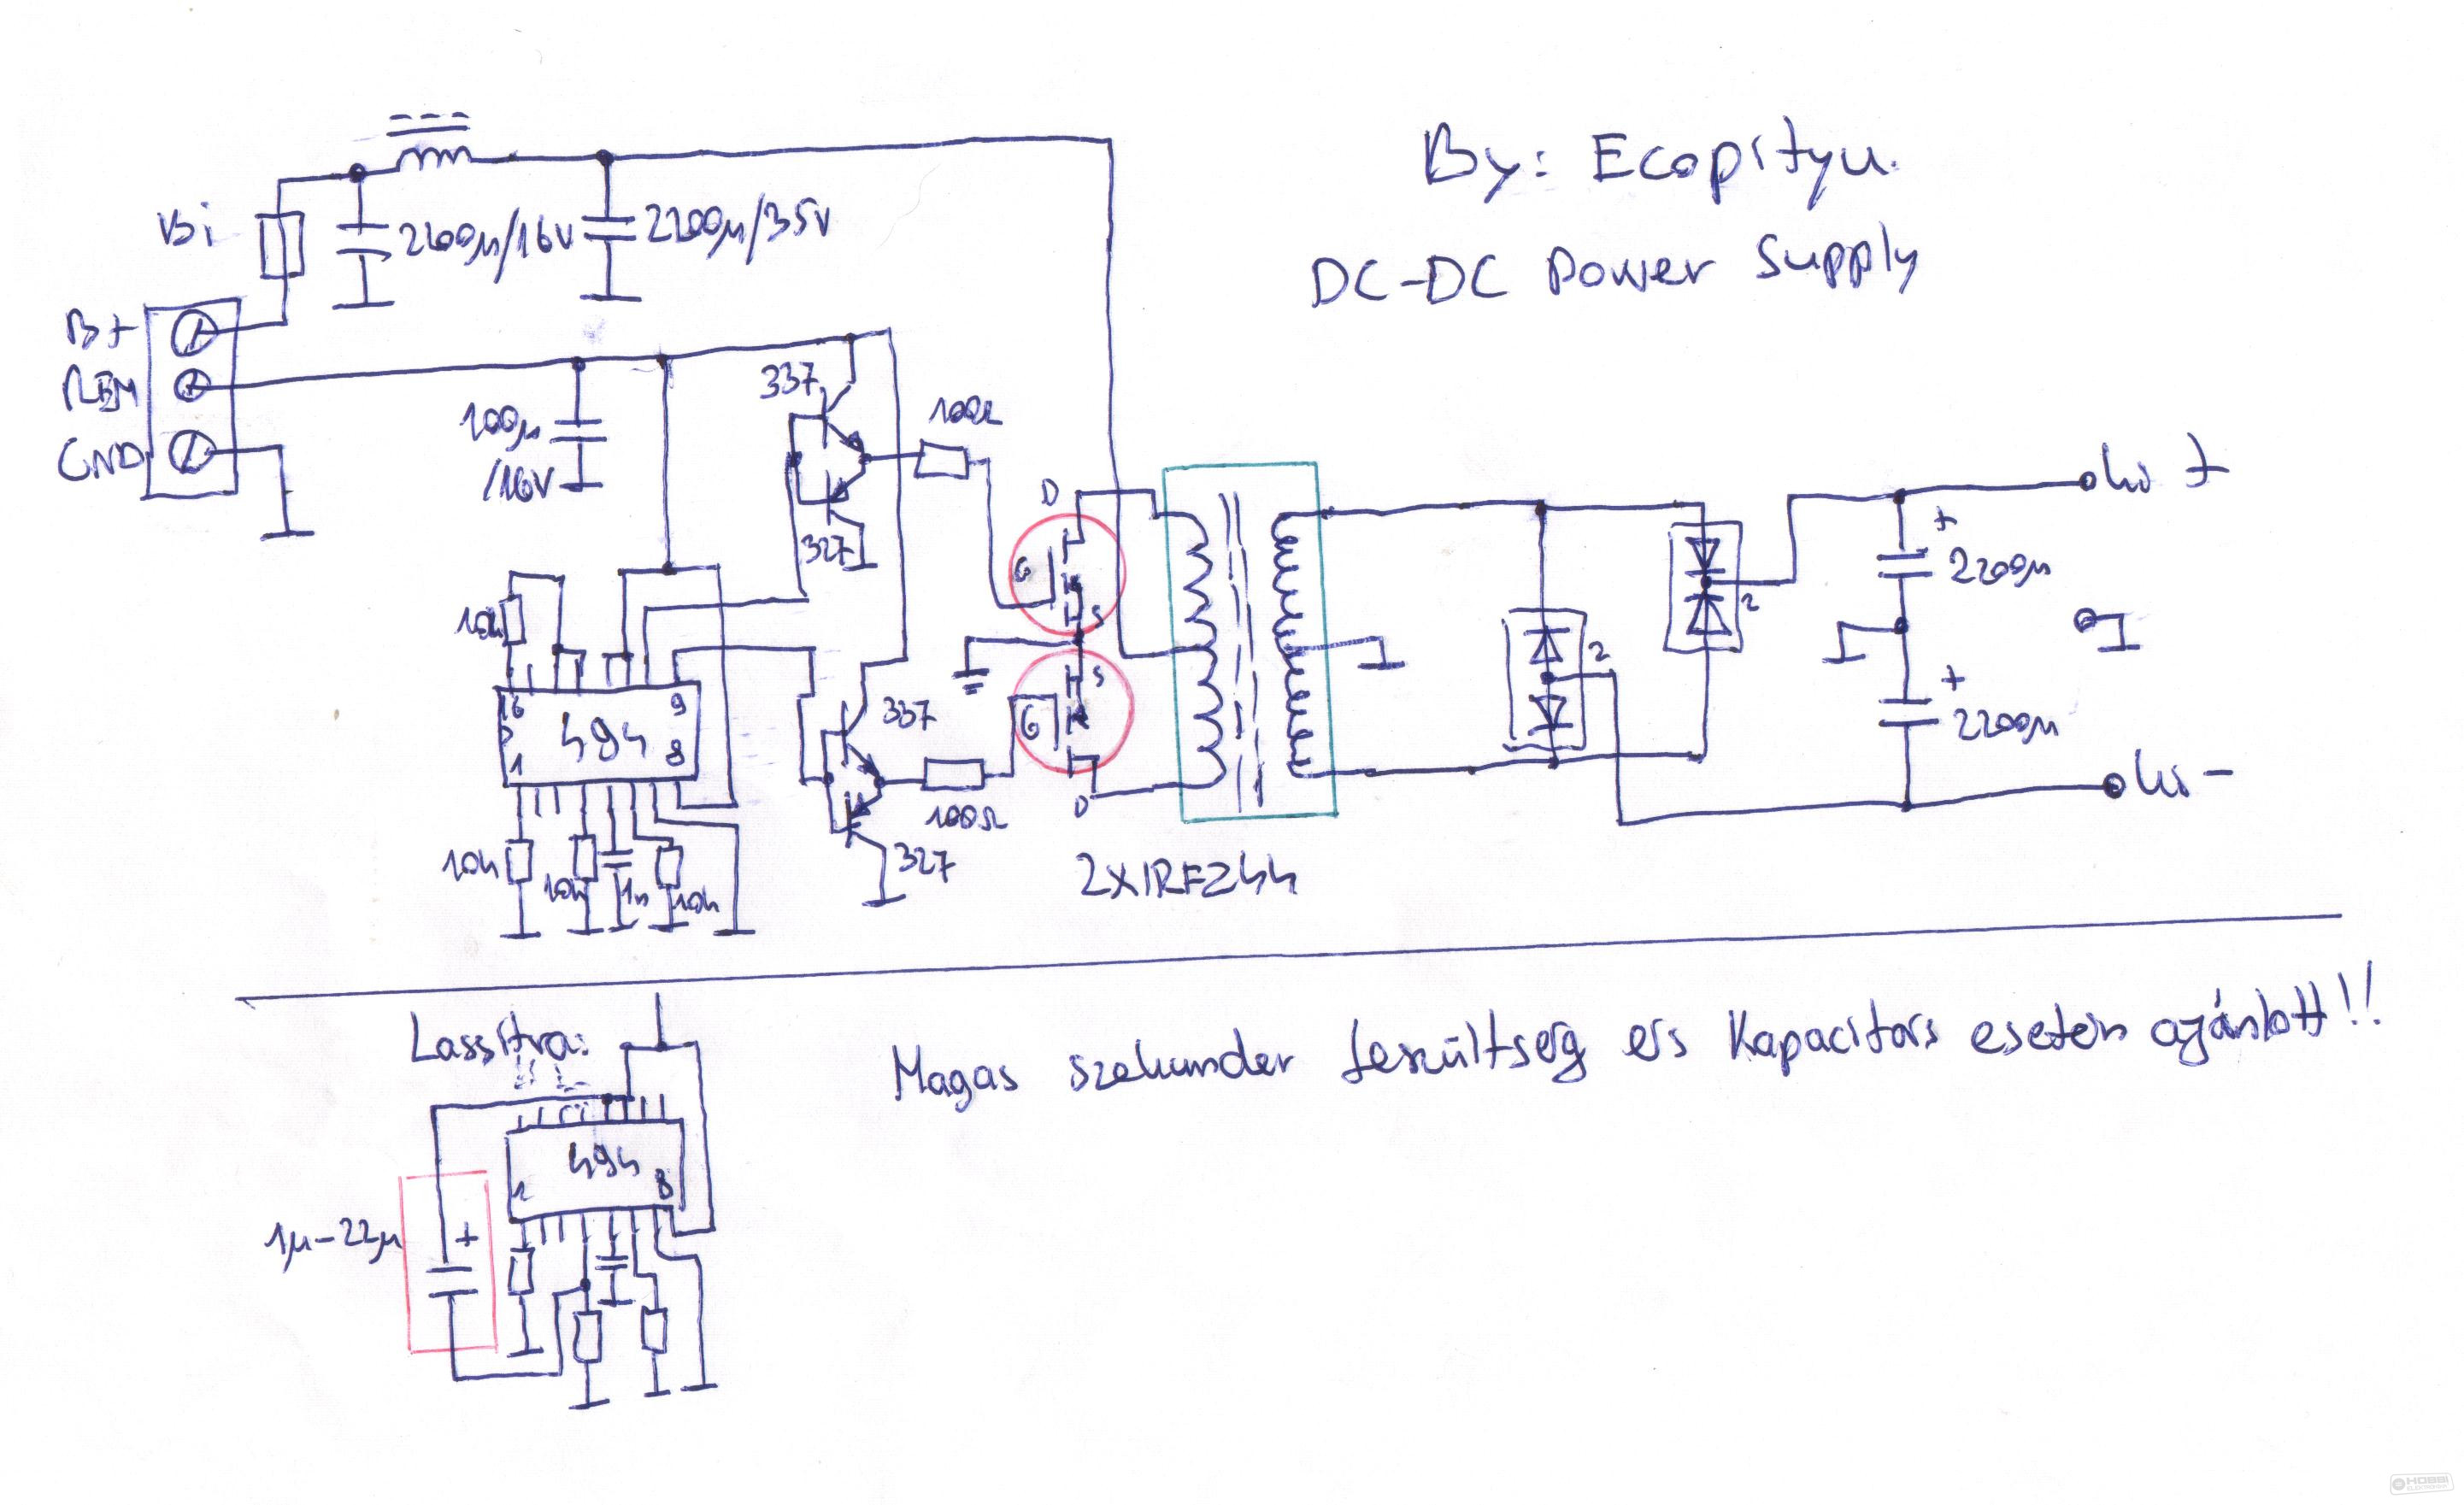 By: Ecopityu.
DC-DC Power Supply
Bi
2200µ/16V
2200µ/35V
B+
REM
GND
100µ
/16V
337
100Ω
327
10k
16
9
494
1
8
10k
10k
1n
10k
337
100Ω
327
D
G
S
S
G
D
2XIRFZ44
2
2
ki +
+
2200µ
+
2200µ
ki -
Lassitra:
Magas szekunder feszültség és Kapacitás esetén ajánlott!!
494
1
8
1µ-22µ
+
HOBBI
ELEKTRONIKA